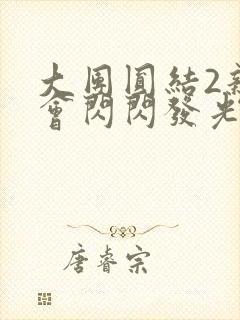 大團圓結2新
會閃閃發光
唐睿宗